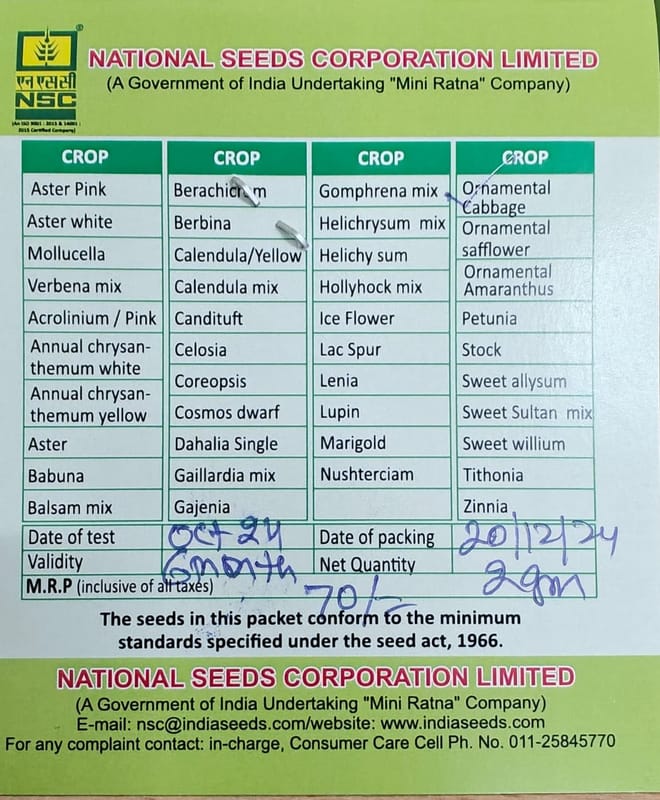 NATIONAL SEEDS CORPORATION LIMITED
(A Government of India Undertaking "Mini Ratna" Company)
एन एस सी
NSC
(An ISO 9001 : 2015 & 14001 :
2015 Certified Company)
CROP CROP CROP CROP
Aster Pink
Aster white
Mollucella
Verbena mix
Acrolinium / Pink
Annual chrysan-
themum white
Annual chrysan-
themum yellow
Aster
Babuna
Balsam mix
Berbina
Calendula/Yellow
Calendula mix
Candituft
Celosia
Coreopsis
Cosmos dwarf
Dahalia Single
Gaillardia mix
Gajenia
Gomphrena mix
Helichrysum mix
Helichy sum
Hollyhock mix
Ice Flower
Lac Spur
Lenia
Lupin
Marigold
Nushterciam
Ornamental
Cabbage
Ornamental
safflower
Ornamental
Amaranthus
Petunia
Stock
Sweet allysum
Sweet Sultan mix
Sweet willium
Tithonia
Zinnia
Date of test Oct 24 Date of packing 20/12/24
Validity 6month Net Quantity 2gm
M.R.P (inclusive of all taxes) 70/-
The seeds in this packet conform to the minimum
standards specified under the seed act, 1966.
NATIONAL SEEDS CORPORATION LIMITED
(A Government of India Undertaking "Mini Ratna" Company)
E-mail: nsc@indiaseeds.com/website: www.indiaseeds.com
For any complaint contact: in-charge, Consumer Care Cell Ph. No. 011-25845770